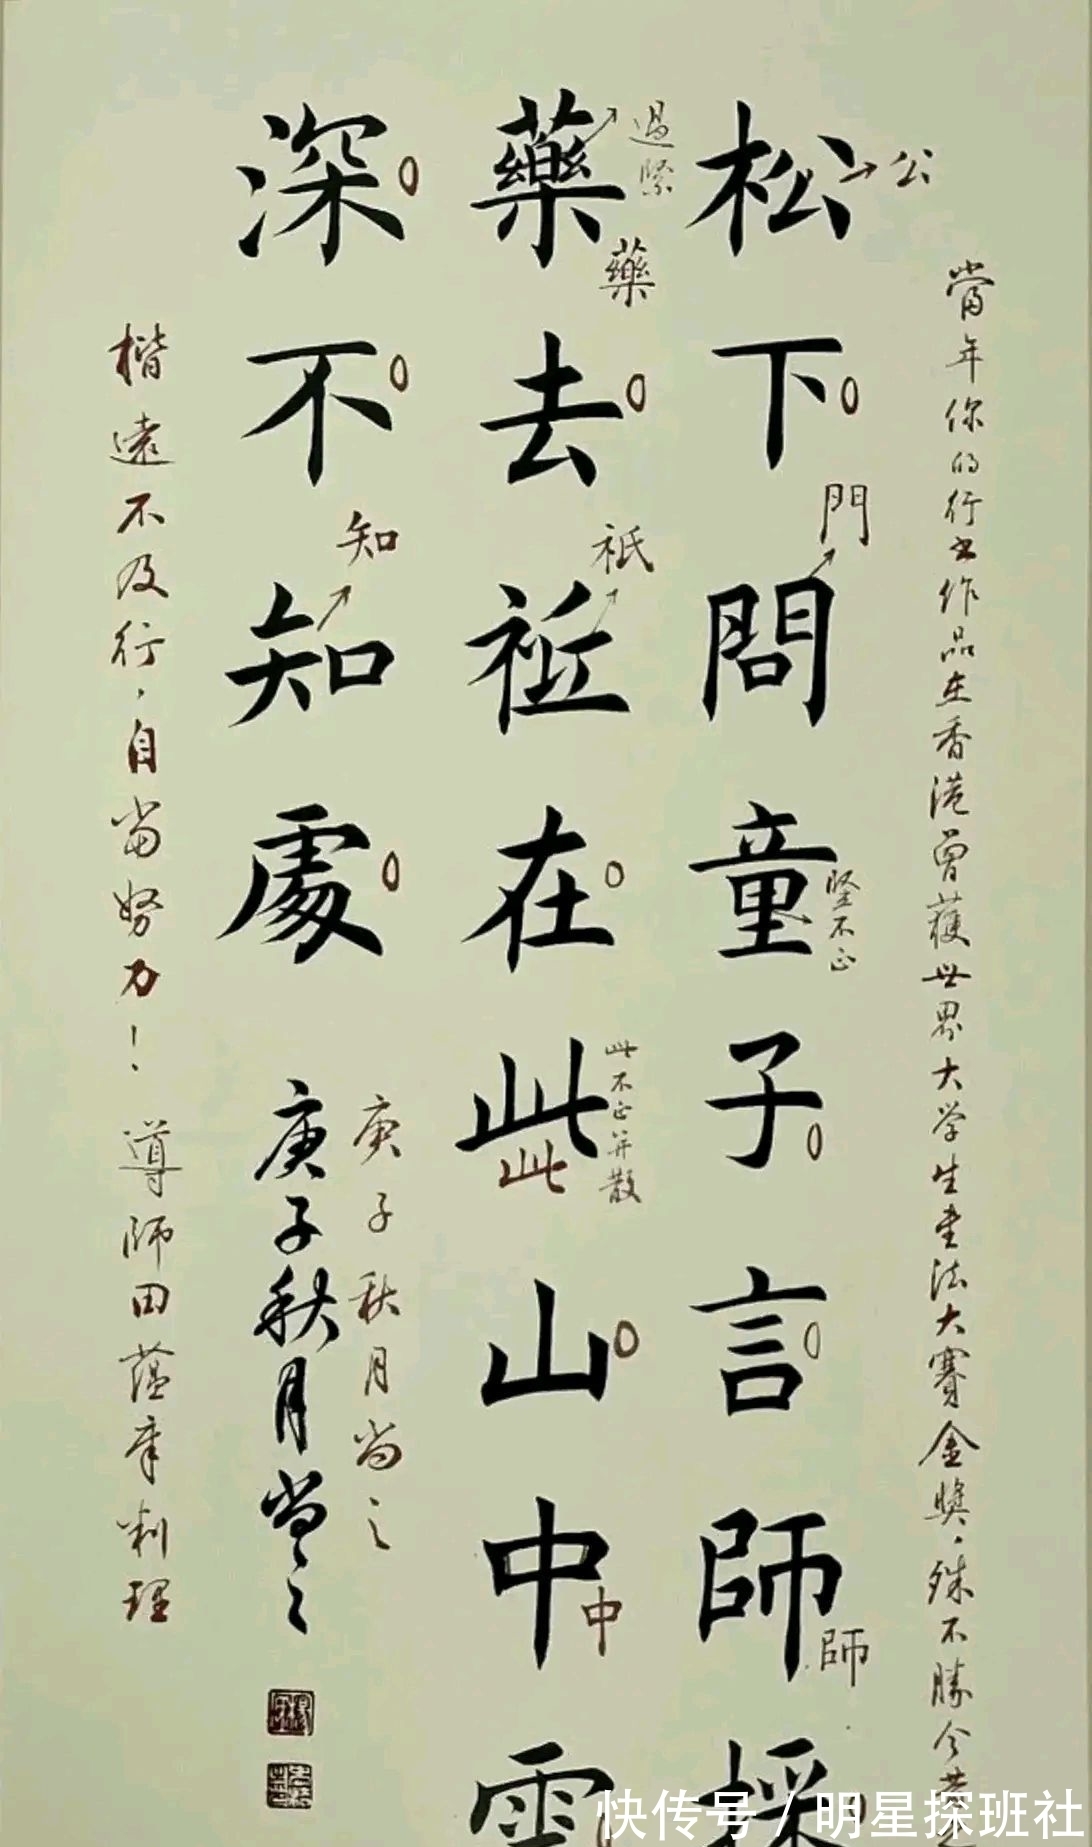 當年你的行書作品在香港曾獲世界大學生書法大賽金獎，殊不勝今
松下問童子言師採
公
門
竪不正
師
藥去祗在此山中雲
過緊
藥
祗
此不正并散
此
中
深不知處
知
庚子秋月尚之
庚子秋月尚之
楷遠不及行，自當努力！導師田蘊章判理
快传号 / 明星探班社